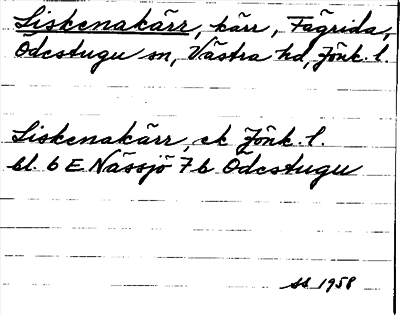 Liskenakärr, kärr, Fägrida,
Ödestugu sn, Västra hd, Jönk. l.
Liskenakärr, ek Jönk. l.
bl. 6 E Nässjö 7 b Ödestugu
ss 1958